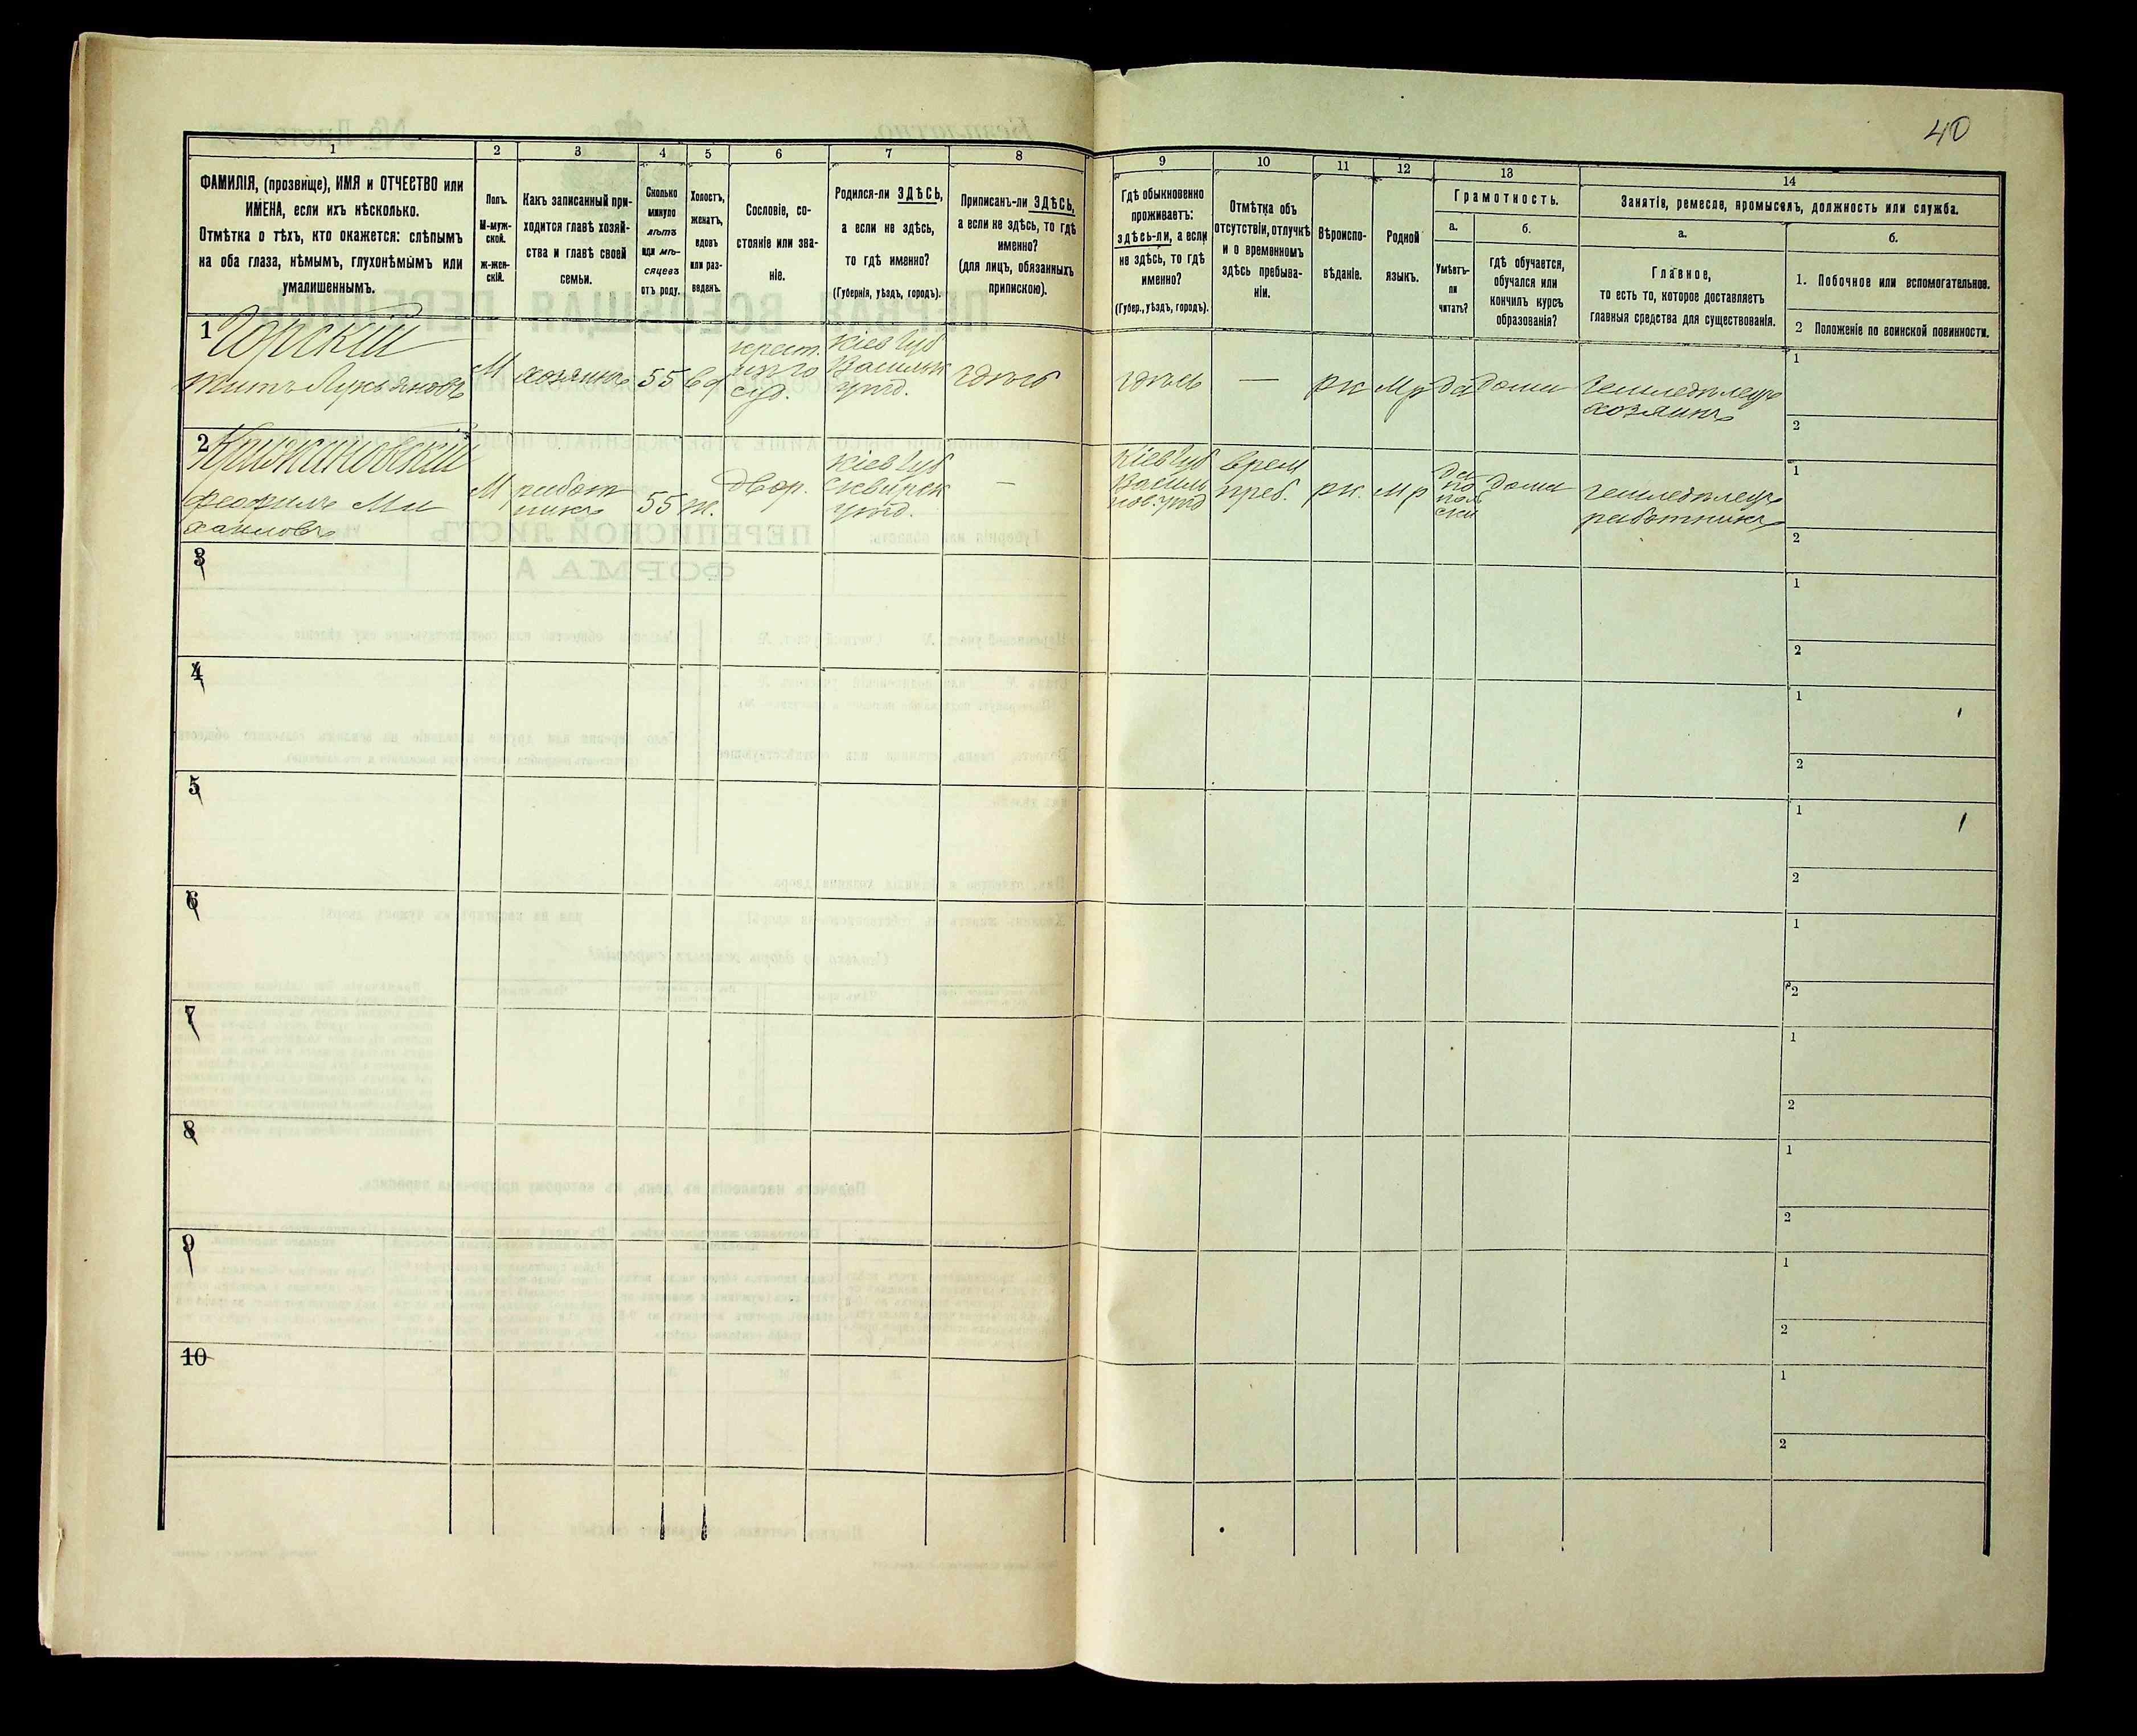 40
1
2
3
4
5
6
7
8
9
10
11
12
13
14
ФАМИЛІЯ, (прозвище), ИМЯ и ОТЧЕСТВО или
ИМЕНА, если ихъ нѣсколько.
Отмѣтка о тѣхъ, кто окажется: слѣпымъ
на оба глаза, нѣмымъ, глухонѣмымъ или
умалишеннымъ.
Полъ.
М-муж-
ской.
Ж-жен-
скій.
Какъ записанный при-
ходится главѣ хозяй-
ства и главѣ своей
семьи.
Сколько
минуло
лѣтъ
или мѣ-
сяцевъ
отъ роду.
Холостъ,
женатъ,
вдовъ
или раз-
веденъ.
Сословіе, со-
стояніе или зва-
ніе.
Родился-ли ЗДѢСЬ,
а если не здѣсь,
то гдѣ именно?
(Губернія, уѣздъ, городъ).
Приписанъ-ли ЗДѢСЬ,
а если не здѣсь, то гдѣ
именно?
(для лицъ, обязанныхъ
припискою).
Гдѣ обыкновенно
проживаетъ:
здѣсь-ли, а если
не здѣсь, то гдѣ
именно?
(Губер., уѣздъ, городъ).
Отмѣтка объ
отсутствіи, отлучкѣ
и о временномъ
здѣсь пребыва-
ніи.
Вѣроиспо-
вѣданіе.
Родной
языкъ.
Грамотность.
а.
Умѣетъ-
ли
читать?
б.
гдѣ обучается,
обучался или
кончилъ курсъ
образованія?
Занятіе, ремесло, промыселъ, должность или служба.
а.
Главное,
то есть то, которое доставляетъ
главныя средства для существованія.
б.
1. Побочное или вспомогательное.
2 Положеніе по воинской повинности.
1 Горскій
Лукьяновъ
М
хозяинъ
55
вд
крест.
Кіев губ
Васильк
уѣзд.
здѣсь
здѣсь
—
рк
Мр
да
дома
земледѣлецъ
хозяинъ
1
2
2 Крижановскій
Ми
хаиловъ
М
работ
никъ
55
ж.
двор.
Кіев губ
Сквирск
уѣзд.
—
Кіев губ
Василь
ков. уѣзд
врем
преб.
рк.
Мр
да
по
поль
ски
дома
земледѣлецъ
работникъ
1
2
3
1
2
4
1
2
5
1
2
6
1
2
7
1
2
8
1
2
9
1
2
10
1
2